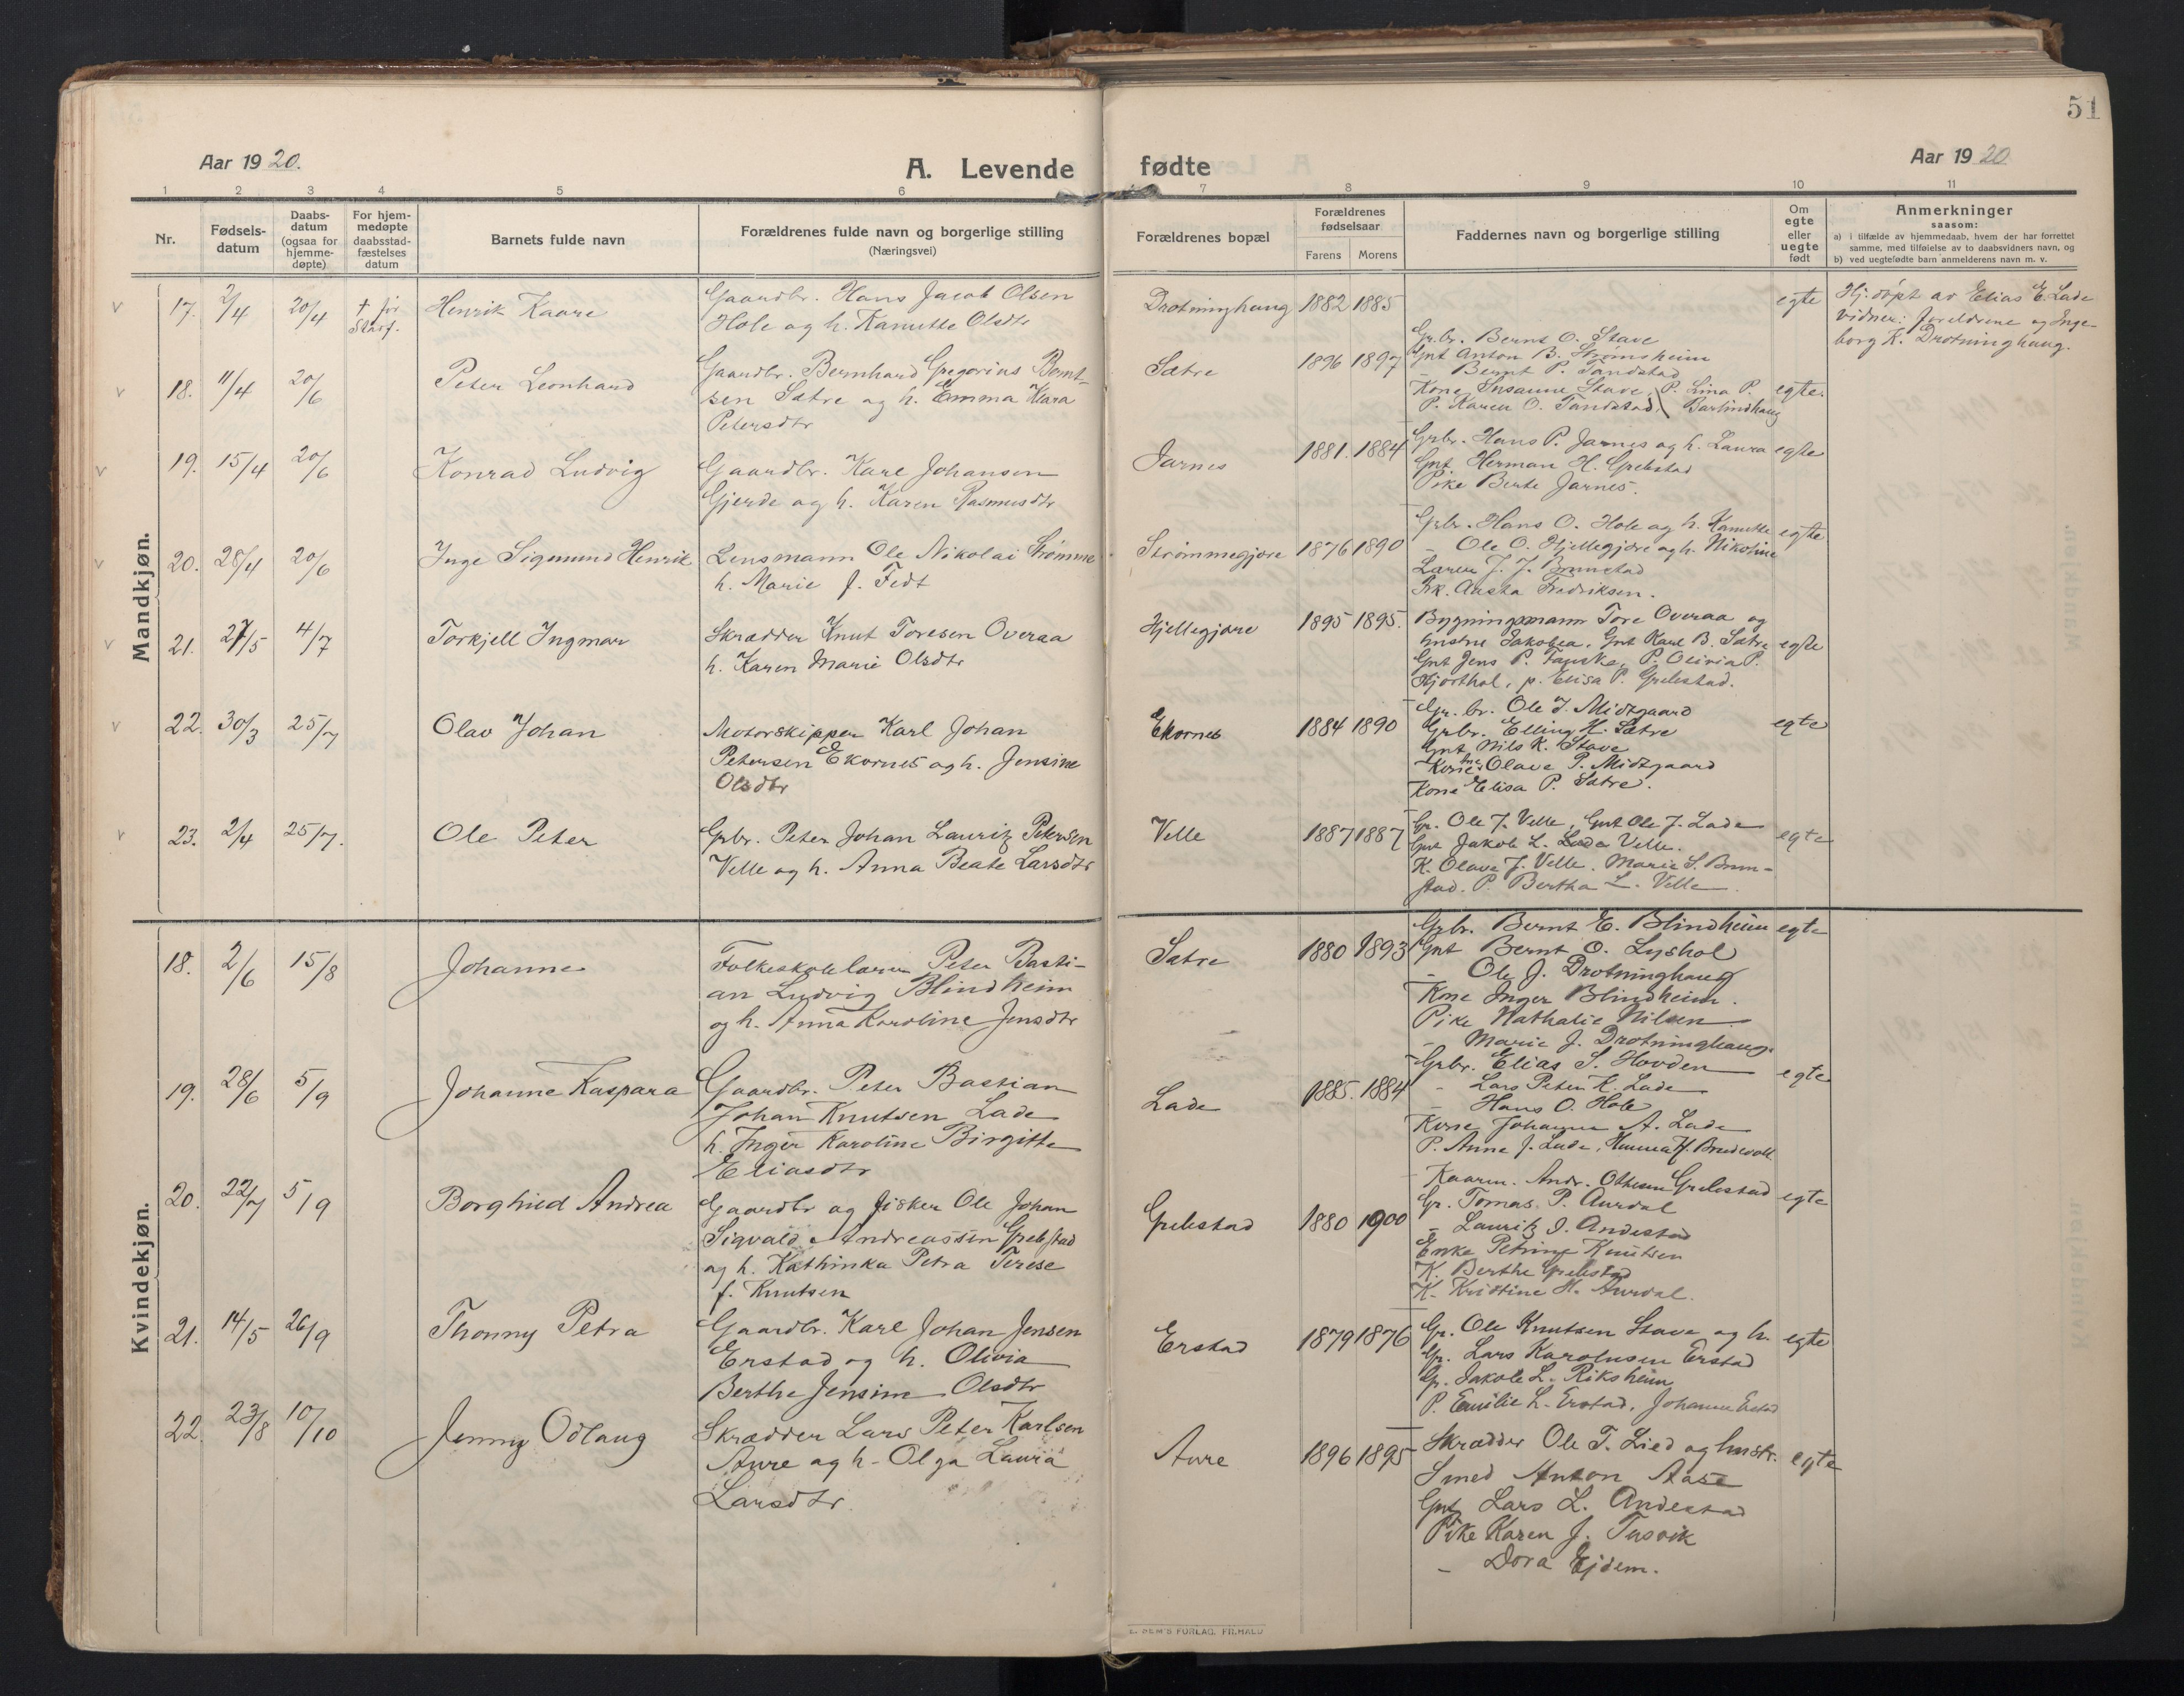 51
Aar 1920.
A. Levende fødte
Aar 1920
1 2 3 4 5 6 7 8 9 10 11
Nr.
Fødsels-
datum
Daabs-
datum
(ogsaa for
hjemme-
døpte)
For hjem-
medøpte
daabsstad-
fæstelses
datum
Barnets fulde navn
Forældrenes fulde navn og borgerlige stilling
(Næringsvei)
Forældrenes bopæl
Forældrenes
fødselsaar
Farens Morens
Faddernes navn og borgerlige stilling
Om
egte
eller
uegte
født
Anmerkninger
saasom:
a) i tilfælde av hjemmedaab, hvem der har forrettet
samme, med tilføielse av to daabsvidners navn, og
b) ved uegtefødte barn anmelderens navn m. v.
Mandkjøn.
17. 2/4 20/4 † før
Staff.
Henrik Kaare
Gaardbr. Hans Jacob Olsen
Hole og h. Kanutte Olsdtr
Drotninghaug 1882 1885
egte
Hj. døpt av Elias E. Lade
vidner: foreldrene og Inge-
borg K. Drotninghaug.
18. 11/4 20/6
Peter Leonhard
Gaardbr. Bernhard Gregorius Bernt-
sen Sætre og h. Emma Klara
Petersdtr
Sætre 1896 1897
Grbr. Bernt O. Stave
Gmt Anton B. Strømsheim
- Bernt P. Tandstad
Kone Susanne Stave, P. Lina P.
P. Karen O. Tandstad, Barlindhaug
egte.
19. 15/4 20/6
Konrad Ludvig
Gaardbr. Karl Johansen
Gjerde og h. Karen Rasmusdtr
Jarnes 1881. 1884
Grbr. Hans P. Jarnes og h. Laura
Gmt Herman H. Grebstad
Pike Berte Jarnes.
egte
20. 28/4 20/6
Inge Sigmund Henrik
Lensmann Ole Nikolai Strømme
h. Marie f. Fedt
Strømmegjære 1876 1890
Grbr. Hans O. Hole og h. Kanutte
- Ole O. Hjellegjære og h. Nikoline
Lærer J. J. Brunstad
Frk. Aasta Fredriksen.
egte
21. 27/5 4/7
Torkjell Ingmar
Skrædder Knut Toresen Overaa
h. Karen Marie Olsdtr
Hjellegjære 1895 1895.
Bygningsmann Tore Overaa og
hustru Jakobea. Gmt Karl B. Sætre
Gmt Jens P. Fauske, P. Olivia P.
Hjorthol, p. Elisa P. Grebstad.
egte
22. 30/3 25/7
Olav Johan
Motorskipper Karl Johan
Petersen Ekornes og h. Jensine
Olsdtr
Ekornes 1884 1890
Gr. br. Ole J. Midtgaard
Grbr. Elling H. Sætre
Gmt Nils K. Stave
Kone Olave P. Midtgaard
Kone Elisa P. Sætre.
egte
23. 2/4 25/7.
Ole Peter
Grbr. Peter Johan Lauritz Petersen
Velle og h. Anna Beate Larsdtr
Velle 1887 1887
Gr. Ole J. Velle, Gmt Ole J. Lade
Gmt Jakob L. Lade Velle.
K. Olave J. Velle. Marie S. Brun-
stad. P. Bertha L. Velle.
egte
Kvindekjøn.
18. 2/6 15/8
Johanne
Folkeskolelærer Peter Basti-
an Ludvig Blindheim
og h. Anna Karoline Jensdtr
Satre 1880 1893
Grbr. Bernt E. Blindheim
Gmt Bernt O. Lyshol
- Ole J. Drotninghaug
Kone Inger Blindheim.
Pike Nathalie Nilsen
- Marie J. Drotninghaug.
egte
19. 28/6 5/9
Johanne Kaspara
Gaardbr. Peter Bastian
Johan Knutsen Lade
h. Inger Karoline Birgitte
Eliasdtr
Lade 1885. 1884
Grbr. Elias S. Hovden
- Lars Peter K. Lade
- Hans O. Hole
Kone Johanne A. Lade
P. Anne J. Lade, Hanna H. Brudevoll.
egte
20. 22/7 5/9
Borghild Andrea
Gaardbr og fisker Ole Johan
Sigvald Andreassen Grebstad
og h. Kathinka Petra Terese
f. Knutsen
Grebstad 1880 1900
Kaarm. Andr. Othesen Grebstad
Gr. Tomas P. Aurdal
- Lauritz J. Andestad
Enke Petrine Knutsen
K. Berthe Grebstad
K. Kristine H. Aurdal.
egte
21. 14/5 26/9
Thonny Petra
Gaardbr. Karl Johan Jensen
Erstad og h. Olivia
Berthe Jensine Olsdtr
Erstad 1879 1876
Gr. Ole Knutsen Stave og h.
Gr. Lars Karolusen Erstad
Gr. Jakob L. Riksheim
P. Emilie L. Erstad, Johanna Erstad
egte
22. 23/8 10/10
Jenny Odlaug
Skrædder Lars Peter Karlsen
Aure og h. Olga Laura
Larsdtr.
Aure 1896 1895
Skrædder Ole T. Lied og hustr.
Smed Anton Aase
Gmt Lars L. Andestad
Pike Karen J. Tusvik
- Dora Ejdem.
egte
E. SEM'S FORLAG, FR.HALD